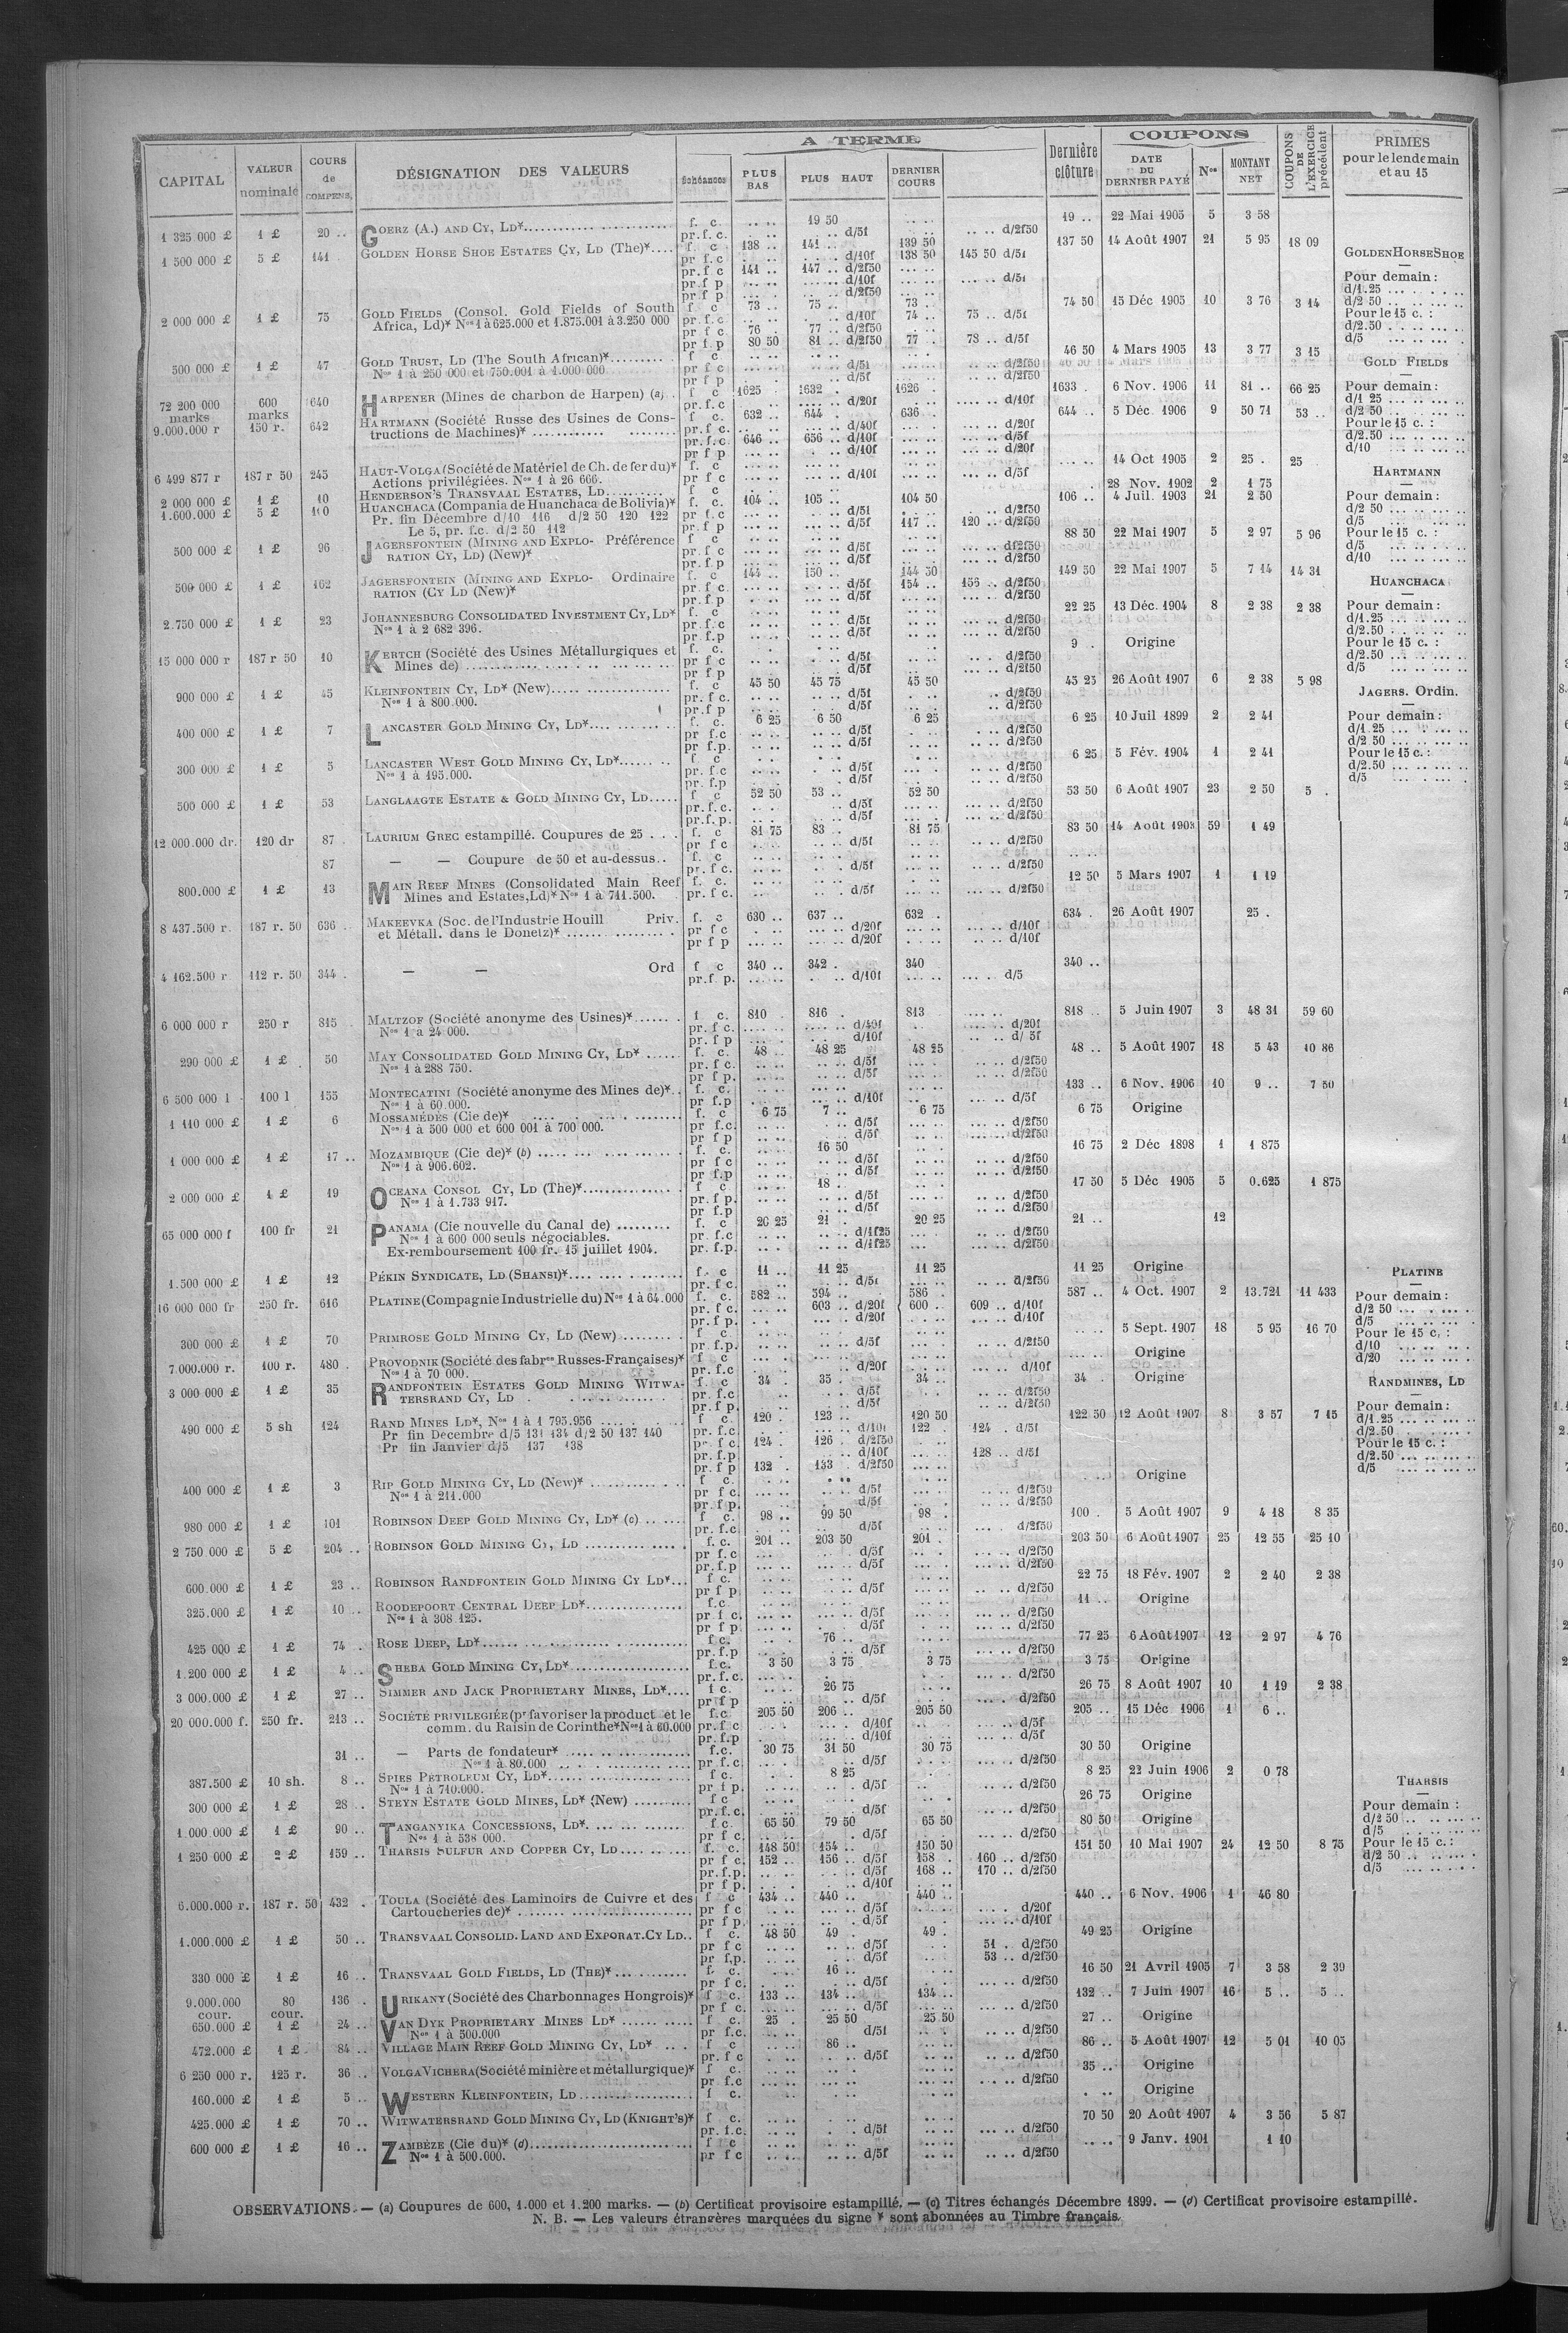 A TERME
COUPONS
CAPITAL | VALEUR nominale | COURS de COMPENS. | DÉSIGNATION DES VALEURS | échéances | PLUS BAS | PLUS HAUT | DERNIER COURS | Dernière clôture | DATE DU DERNIER PAYÉ | Nos | MONTANT NET | COUPONS DE L'EXERCICE précédent | PRIMES pour le lendemain et au 15
1 325 000 £ | 1 £ | 20 .. | GOERZ (A.) AND CY, LD* | f. c. | 19 50 | 19 .. | 22 Mai 1905 | 5 | 3 58
pr. f. c. | d/5f | d/2f50
1 500 000 £ | 5 £ | 141 | GOLDEN HORSE SHOE ESTATES CY, LD (The)* | f c | 138 .. | 141 .. | 139 50 | 137 50 | 14 Août 1907 | 21 | 5 95 | 18 09
pr f c | d/10f | 138 50 | 145 50 d/5f
pr. f c | 141 .. | 147 .. d/2f50
pr f p | d/10f | d/5f
pr f p | d/2f50
2 000 000 £ | 1 £ | 75 | GOLD FIELDS (Consol. Gold Fields of South | f c | 73 .. | 75 .. | 73 . | 74 50 | 15 Déc 1905 | 10 | 3 76 | 3 14
Africa, Ld)* Nos 1 à 625.000 et 1.875.001 à 3.250 000 | pr. f. c | d/10f | 74 .. | 75 .. d/5f
pr f c | 76 . | 77 .. d/2f50
pr f. p | 80 50 | 81 .. d/2f50 | 77 . | 78 .. d/5f
500 000 £ | 1 £ | 47 | GOLD TRUST, LD (The South African)* | f c | 46 50 | 4 Mars 1905 | 13 | 3 77 | 3 15
Nos 1 à 250 000 et 750.001 à 1.000 000 | pr f c | d/5f | d/2f50
pr f p | d/5f | d/2f50
72 200 000 marks | 600 marks | 640 | HARPENER (Mines de charbon de Harpen) (a) | f c | 1625 | 1632 . | 1626 . | 1633 . | 6 Nov. 1906 | 11 | 81 .. | 66 25
pr. f. c | d/20f | d/10f
9.000.000 r | 150 r. | 642 | HARTMANN (Société Russe des Usines de Cons- | f c. | 632 .. | 644 . | 636 . | 644 .. | 5 Déc 1906 | 9 | 50 71 | 53 ..
tructions de Machines)* | pr. f c. | d/40f | d/20f
pr. f. c. | 646 .. | 656 .. d/10f | d/5f
pr f p | d/10f | d/20f
6 499 877 r | 187 r 50 | 245 | HAUT-VOLGA (Société de Matériel de Ch. de fer du)* | f. c | 14 Oct 1905 | 2 | 25 . | 25
Actions privilégiées. Nos 1 à 26 666. | pr f c | d/10f | d/5f
2 000 000 £ | 1 £ | 10 | HENDERSON'S TRANSVAAL ESTATES, LD | f c | 28 Nov. 1902 | 2 | 1 75
1.600.000 £ | 5 £ | 110 | HUANCHACA (Compania de Huanchaca de Bolivia)* | f. c. | 104 .. | 105 .. | 104 50 | 106 .. | 4 Juil. 1903 | 21 | 2 50
Pr. fin Décembre d/10 116 d/2 50 120 122 | pr f. c | d/5f | d/2f50
Le 5, pr. f.c. d/2 50 112 | pr. f p | d/5f | 117 .. | 120 .. d/2f50
500 000 £ | 1 £ | 96 | JAGERSFONTEIN (MINING AND EXPLO- Préférence | f c | 88 50 | 22 Mai 1907 | 5 | 2 97 | 5 96
RATION CY, LD) (New)* | pr f c | d/5f | d/2f50
pr. f p | d/5f | d/2f50
500 000 £ | 1 £ | 162 | JAGERSFONTEIN (MINING AND EXPLO- Ordinaire | f. c | 144 .. | 150 .. | 144 50 | 149 50 | 22 Mai 1907 | 5 | 7 14 | 14 31
RATION (CY LD (New)* | pr f c | d/5f | 154 .. | 156 .. d/2f50
pr. f. p | d/5f | d/2f50
2.750 000 £ | 1 £ | 23 | JOHANNESBURG CONSOLIDATED INVESTMENT CY, LD* | f. c | 22 25 | 13 Déc. 1904 | 8 | 2 38 | 2 38
Nos 1 à 2 682 396. | pr. f. c | d/5f | d/2f50
pr. f. p | d/5f | d/2f50
15 000 000 r | 187 r 50 | 10 | KERTCH (Société des Usines Métallurgiques et | f. c. | 9 . | Origine
Mines de) | pr f c | d/5f | d/2f50
pr f p | d/5f | d/2f50
900 000 £ | 1 £ | 45 | KLEINFONTEIN CY, LD* (New) | f. c | 45 50 | 45 75 | 45 50 | 45 25 | 26 Août 1907 | 6 | 2 38 | 5 98
Nos 1 à 800.000. | pr. f c. | d/5f | d/2f50
pr. f p | d/5f | d/2f50
400 000 £ | 1 £ | 7 | LANCASTER GOLD MINING CY, LD* | f. c. | 6 25 | 6 50 | 6 25 | 6 25 | 10 Juil 1899 | 2 | 2 41
pr. f. c | d/5f | d/2f50
pr f. p. | d/5f | d/2f50
300 000 £ | 1 £ | 5 | LANCASTER WEST GOLD MINING CY, LD* | f c | 6 25 | 5 Fév. 1904 | 1 | 2 41
Nos 1 à 495.000. | pr. f c | d/5f | d/2f50
pr. f. p | d/5f | d/2f50
500 000 £ | 1 £ | 53 | LANGLAAGTE ESTATE & GOLD MINING CY, LD | f c | 52 50 | 53 .. | 52 50 | 53 50 | 6 Août 1907 | 23 | 2 50 | 5 .
pr. f. c. | d/5f | d/2f50
pr. f. p. | d/5f | d/2f50
12 000.000 dr. | 120 dr | 87 | LAURIUM GREC estampillé. Coupures de 25 | f. c | 81 75 | 83 . | 81 75 | 83 50 | 14 Août 1903 | 59 | 1 49
pr f c | d/5f | d/2f50
87 | — — Coupure de 50 et au-dessus | f. c
pr. f c. | d/5f | d/2f50
800.000 £ | 1 £ | 13 | MAIN REEF MINES (Consolidated Main Reef | f. c. | 12 50 | 5 Mars 1907 | 1 | 1 19
Mines and Estates, Ld)* Nos 1 à 741.500. | pr. f c. | d/5f | d/2f50
8 437.500 r. | 187 r. 50 | 636 | MAKEEVKA (Soc. de l'Industrie Houill Priv. | f. c | 630 .. | 637 .. | 632 . | 634 . | 26 Août 1907 | 25 .
et Métall. dans le Donetz)* | pr f c | d/20f | d/10f
pr f p | d/20f | d/10f
4 162.500 r | 112 r. 50 | 344 . | — — Ord | f c | 340 .. | 342 . | 340 | 340 ..
pr. f p. | d/10f | d/5
6 000 000 r | 250 r | 815 | MALTZOF (Société anonyme des Usines)* | f c. | 810 . | 816 . | 813 | 818 .. | 5 Juin 1907 | 3 | 48 31 | 59 60
Nos 1 à 24 000. | pr. f c. | d/40f | d/20f
pr. f p | d/10f | d/ 5f
290 000 £ | 1 £ | 50 | MAY CONSOLIDATED GOLD MINING CY, LD* | f. c. | 48 .. | 48 25 | 48 25 | 48 .. | 5 Août 1907 | 18 | 5 43 | 10 86
Nos 1 à 288 750. | pr. f c. | d/5f | d/2f50
pr f p. | d/5f | d/2f50
6 500 000 l | 100 l | 155 | MONTECATINI (Société anonyme des Mines de)* | f. c. | 133 .. | 6 Nov. 1906 | 10 | 9 .. | 7 50
Nos 1 à 60.000. | pr f. p | d/10f | d/5f
1 110 000 £ | 1 £ | 6 | MOSSAMÉDÈS (Cie de)* | f. c | 6 75 | 7 .. | 6 75 | 6 75 | Origine
Nos 1 à 500 000 et 600 001 à 700 000. | pr f. c. | d/5f | d/2f50
pr f p | d/5f | d/2f50
1 000 000 £ | 1 £ | 17 .. | MOZAMBIQUE (Cie de)* (b) | f. c. | 16 50 | 16 75 | 2 Déc 1898 | 1 | 1 875
Nos 1 à 906.602. | pr f c | d/5f | d/2f50
pr f. p | d/5f | d/2f50
2 000 000 £ | 1 £ | 19 | OCEANA CONSOL CY, LD (The)* | f c | 18 . | 17 50 | 5 Déc 1905 | 5 | 0.625 | 1 875
Nos 1 à 1.733 917. | pr. f p. | d/5f | d/2f50
pr. f. p | d/5f | d/2f50
65 000 000 f | 100 fr | 21 | PANAMA (Cie nouvelle du Canal de) | f. c | 20 25 | 21 . | 20 25 | 21 .. | 12
Nos 1 à 600 000 seuls négociables. | pr. f. c | d/1f25 | d/2f50
Ex-remboursement 100 fr. 15 juillet 1904. | pr. f. p. | d/1f25 | d/2f50
1.500 000 £ | 1 £ | 12 | PÉKIN SYNDICATE, LD (SHANSI)* | f. c | 11 .. | 11 25 | 11 25 | 11 25 | Origine
pr. f c. | d/5f | d/2f50
16 000 000 fr | 250 fr. | 616 | PLATINE (Compagnie Industrielle du) Nos 1 à 64.000 | f. c. | 582 .. | 594 .. | 586 . | 587 .. | 4 Oct. 1907 | 2 | 13.721 | 11 433
pr. f c. | 603 .. d/20f | 600 .. | 609 .. d/10f
pr. f p. | d/20f | d/10f
300 000 £ | 1 £ | 70 | PRIMROSE GOLD MINING CY, LD (New) | f c | 5 Sept. 1907 | 18 | 5 95 | 16 70
pr. f. p. | d/5f | d/2f50
7.000.000 r. | 100 r. | 480 . | PROVODNIK (Société des fabres Russes-Françaises)* | f c | Origine
Nos 1 à 70 000. | pr. f. c | d/20f | d/10f
3 000 000 £ | 1 £ | 35 | RANDFONTEIN ESTATES GOLD MINING WITWA- | f. c | 34 . | 35 . | 34 .. | 34 . | Origine
TERSRAND CY, LD | pr. f. c | d/5f | d/2f50
pr. f p. | d/5f | d/2f50
490 000 £ | 5 sh | 124 | RAND MINES LD*, Nos 1 à 1 795.956 | f c. | 120 . | 123 .. | 120 50 | 122 50 | 12 Août 1907 | 8 | 3 57 | 7 15
Pr fin Décembre d/5 131 134 d/2 50 137 140 | pr. f. c | d/10f | 122 . | 124 . d/5f
Pr fin Janvier d/5 137 138 | pr. f c. | 124 . | 126 . d/2f50
pr. f. p | d/10f | 128 .. d/5f
pr. f p | 132 . | 133 . d/2f50
400 000 £ | 1 £ | 3 | RIP GOLD MINING CY, LD (New)* | f c. | Origine
Nos 1 à 211.000 | pr f c. | d/5f | d/2f50
pr. f p. | d/5f | d/2f50
980 000 £ | 1 £ | 101 | ROBINSON DEEP GOLD MINING CY, LD* (c) | f c. | 98 .. | 99 50 | 98 . | 100 . | 5 Août 1907 | 9 | 4 18 | 8 35
pr. f. c | d/5f | d/2f50
2 750 000 £ | 5 £ | 204 .. | ROBINSON GOLD MINING CY, LD | f. c. | 201 .. | 203 50 | 201 . | 203 50 | 6 Août 1907 | 25 | 12 55 | 25 10
pr f. c | d/5f | d/2f50
pr. f. p | d/5f | d/2f50
600.000 £ | 1 £ | 23 .. | ROBINSON RANDFONTEIN GOLD MINING CY LD* | f c. | 22 75 | 18 Fév. 1907 | 2 | 2 40 | 2 38
pr f p. | d/5f | d/2f50
325.000 £ | 1 £ | 10 .. | ROODEPOORT CENTRAL DEEP LD* | f. c | 11 .. | Origine
Nos 1 à 308 125. | pr f c. | d/5f | d/2f50
pr f p. | d/5f | d/2f50
425 000 £ | 1 £ | 74 . | ROSE DEEP, LD* | f c. | 76 .. | 77 25 | 6 Août 1907 | 12 | 2 97 | 4 76
pr. f. p | d/5f | d/2f50
1.200 000 £ | 1 £ | 4 .. | SHEBA GOLD MINING CY, LD* | f. c. | 3 50 | 3 75 | 3 75 | 3 75 | Origine
pr. f. c. | d/2f50
3 000.000 £ | 1 £ | 27 .. | SIMMER AND JACK PROPRIETARY MINES, LD* | f c. | 26 75 | 26 75 | 8 Août 1907 | 10 | 1 19 | 2 38
pr f p | d/5f | d/2f50
20 000.000 f. | 250 fr. | 213 .. | SOCIÉTÉ PRIVILEGIÉE (pr favoriser la product et le | f. c | 205 50 | 206 .. | 205 50 | 205 .. | 15 Déc 1906 | 1 | 6 ..
comm. du Raisin de Corinthe* Nos 1 à 60.000 | pr. f c | d/10f | d/5f
pr. f. p | d/10f | d/5f
31 .. | — Parts de fondateur* | f. c. | 30 75 | 31 50 | 30 75 | 30 50 | Origine
Nos 1 à 80.000 | pr f. c. | d/5f | d/2f50
387.500 £ | 10 sh. | 8 .. | SPIES PETROLEUM CY, LD* | f c. | 8 25 | 8 25 | 22 Juin 1906 | 2 | 0 78
Nos 1 à 710.000. | pr f p. | d/5f | d/2f50
300 000 £ | 1 £ | 28 .. | STEYN ESTATE GOLD MINES, LD* (New) | f c | 26 75 | Origine
pr. f. c. | d/5f | d/2f50
1.000.000 £ | 1 £ | 90 .. | TANGANYIKA CONCESSIONS, LD* | f. c. | 65 50 | 79 50 | 65 50 | 80 50 | Origine
Nos 1 à 538 000. | pr f c. | d/5f | d/2f50
1 250 000 £ | 2 £ | 159 .. | THARSIS SULFUR AND COPPER CY, LD | f. c. | 148 50 | 154 .. | 150 50 | 151 50 | 10 Mai 1907 | 24 | 12 50 | 8 75
pr f c. | 152 .. | 156 .. d/5f | 158 .. | 160 .. d/2f50
pr. f. p. | d/5f | 168 .. | 170 .. d/2f50
pr f p. | d/10f
6.000.000 r. | 187 r. 50 | 432 . | TOULA (Société des Laminoirs de Cuivre et des | f c | 434 .. | 440 .. | 440 .. | 440 .. | 6 Nov. 1906 | 1 | 46 80
Cartoucheries de)* | pr f c | d/5f | d/20f
pr f p. | d/5f | d/10f
1.000.000 £ | 1 £ | 50 .. | TRANSVAAL CONSOLID. LAND AND EXPORAT. CY LD | f c. | 48 50 | 49 . | 49 . | 49 25 | Origine
pr f c | d/5f | 51 . d/2f50
pr f. p. | d/5f | 53 .. d/2f50
330 000 £ | 1 £ | 16 .. | TRANSVAAL GOLD FIELDS, LD (THE)* | f. c. | 16 .. | 16 50 | 21 Avril 1905 | 7 | 3 58 | 2 39
pr f c. | d/5f | d/2f50
9.000.000 cour. | 80 cour. | 136 . | URIKANY (Société des Charbonnages Hongrois)* | f c. | 133 .. | 134 .. | 134 .. | 132 .. | 7 Juin 1907 | 16 | 5 .. | 5 ..
pr f c. | d/5f | d/2f50
650.000 £ | 1 £ | 24 .. | VAN DYK PROPRIETARY MINES LD* | f c. | 25 . | 25 50 | 25 50 | 27 .. | Origine
Nos 1 à 500.000 | pr f. c. | d/5f | d/2f50
472.000 £ | 1 £ | 84 .. | VILLAGE MAIN REEF GOLD MINING CY, LD* | f c | 86 .. | 86 .. | 5 Août 1907 | 12 | 5 01 | 10 05
pr. f c | d/5f | d/2f50
6 250 000 r. | 125 r. | 36 .. | VOLGA VICHERA (Société minière et métallurgique)* | f c. | 35 .. | Origine
pr f. c | d/2f50
160.000 £ | 1 £ | 5 .. | WESTERN KLEINFONTEIN, LD | f c. | Origine
425.000 £ | 1 £ | 70 .. | WITWATERSRAND GOLD MINING CY, LD (KNIGHT'S)* | f c. | 70 50 | 20 Août 1907 | 4 | 3 56 | 5 87
pr. f. c. | d/5f | d/2f50
600 000 £ | 1 £ | 16 .. | ZAMBÈZE (Cie du)* (d) | f c | 9 Janv. 1901 | 1 10
Nos 1 à 500.000. | pr f c | d/5f | d/2f50
GOLDEN HORSE SHOE
Pour demain :
d/1.25
d/2 50
Pour le 15 c. :
d/2.50
d/5
GOLD FIELDS
Pour demain :
d/1 25
d/2 50
Pour le 15 c. :
d/2.50
d/10
HARTMANN
Pour demain :
d/2 50
d/5
Pour le 15 c. :
d/5
d/10
HUANCHACA
Pour demain :
d/1.25
d/2.50
Pour le 15 c. :
d/2.50
d/5
JAGERS. Ordin.
Pour demain :
d/1 25
d/2 50
Pour le 15 c. :
d/2.50
d/5
PLATINE
Pour demain :
d/2 50
d/5
Pour le 15 c. :
d/10
d/20
RANDMINES, LD
Pour demain :
d/1.25
d/2.50
Pour le 15 c. :
d/2.50
d/5
THARSIS
Pour demain :
d/2 50
d/5
Pour le 15 c. :
d/2 50
d/5
OBSERVATIONS. — (a) Coupures de 600, 1.000 et 1.200 marks. — (b) Certificat provisoire estampillé. — (c) Titres échangés Décembre 1899. — (d) Certificat provisoire estampillé.
N. B. — Les valeurs étrangères marquées du signe * sont abonnées au Timbre français.